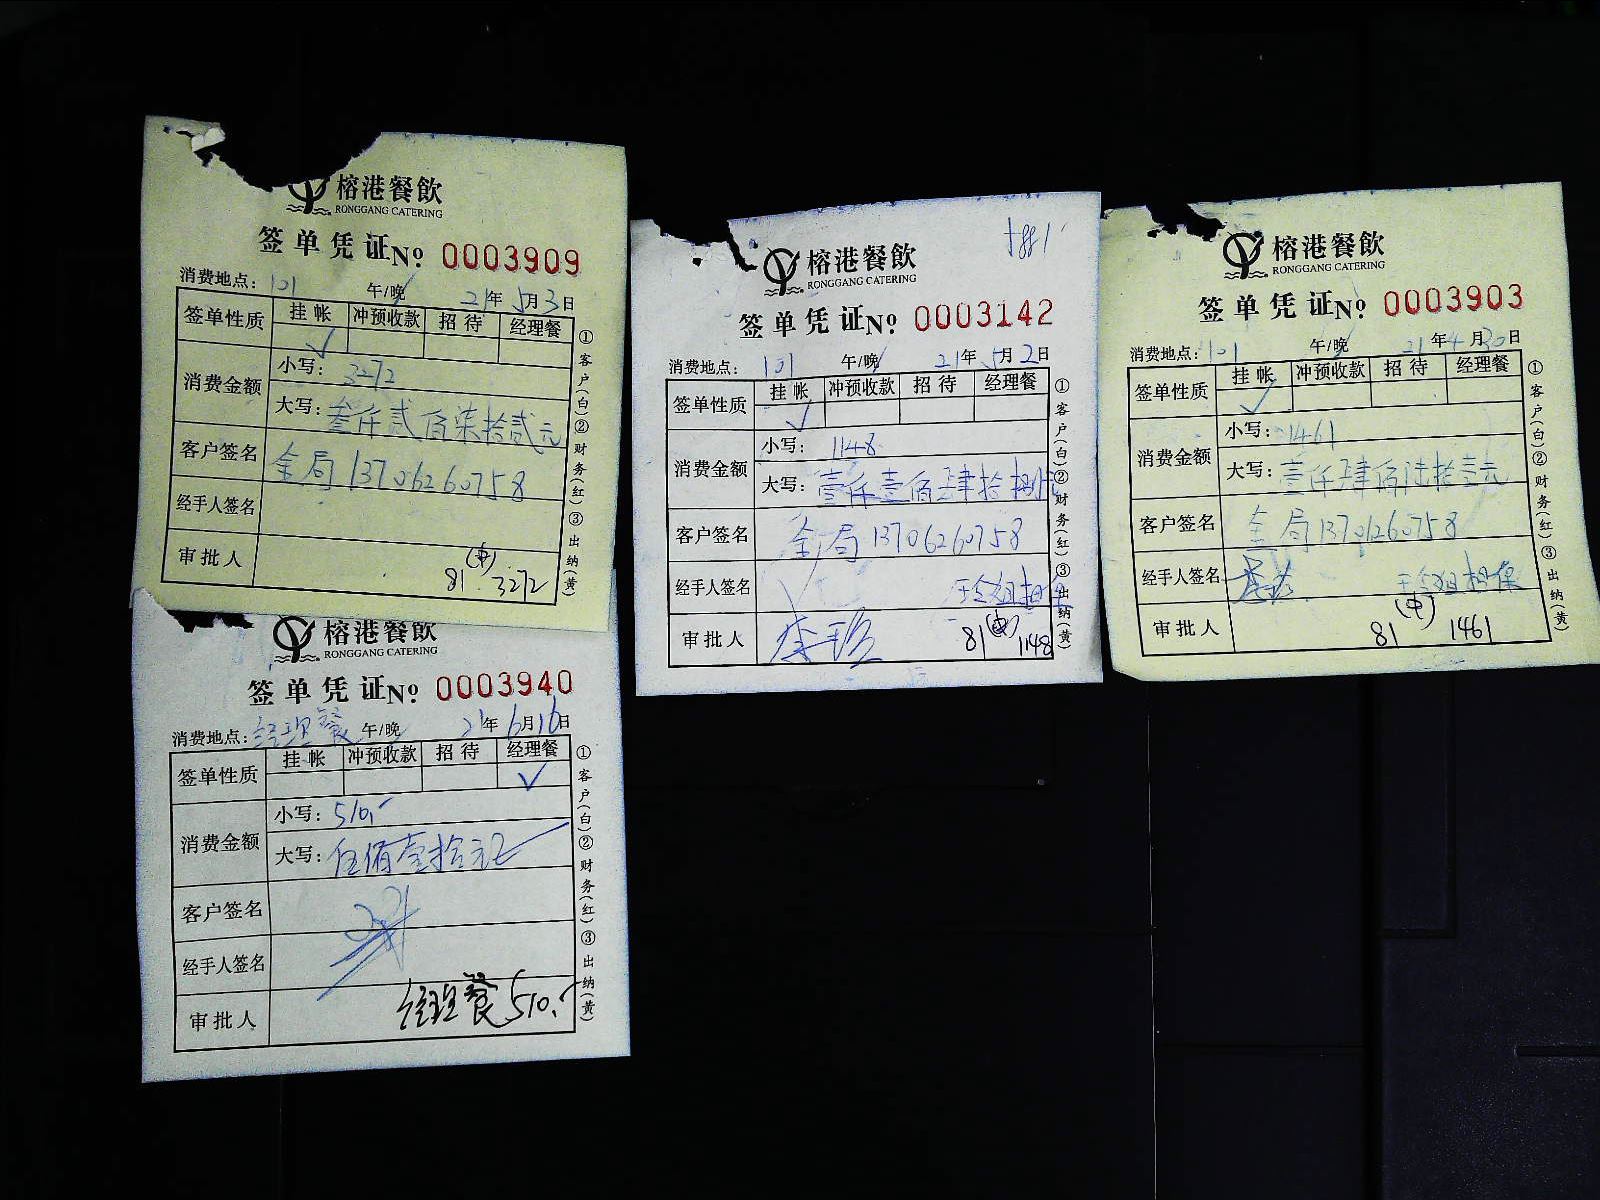 榕港餐飲
RONGGANG CATERING
签单凭证 No 0003909
消费地点: 101 午/晚 21年5月3日
签单性质 挂帐 冲预收款 招待 经理餐
✓
消费金额 小写: 3272
大写: 叁仟贰佰柒拾贰元
客户签名 金局 13706260758
经手人签名
审批人
(中)
81 3272
①客户(白)②财务(红)③出纳(黄)
榕港餐飲
RONGGANG CATERING
签单凭证 No 0003142
消费地点: 101 午/晚 21年5月2日
签单性质 挂帐 冲预收款 招待 经理餐
✓
消费金额 小写: 1148
大写: 壹仟壹佰肆拾捌元
客户签名 金局 13706260758
经手人签名
审批人
81 1148
①客户(白)②财务(红)③出纳(黄)
榕港餐飲
RONGGANG CATERING
签单凭证 No 0003903
消费地点: 101 午/晚 21年4月30日
签单性质 挂帐 冲预收款 招待 经理餐
✓
消费金额 小写: 1461
大写: 壹仟肆佰陆拾壹元
客户签名 金局
经手人签名
审批人
(中)
81 1461
①客户(白)②财务(红)③出纳(黄)
榕港餐飲
RONGGANG CATERING
签单凭证 No 0003940
消费地点: 经理餐 午/晚 21年6月16日
签单性质 挂帐 冲预收款 招待 经理餐
✓
消费金额 小写: 510.-
大写: 伍佰壹拾元正
客户签名
经手人签名
审批人 经理餐 510.-
①客户(白)②财务(红)③出纳(黄)